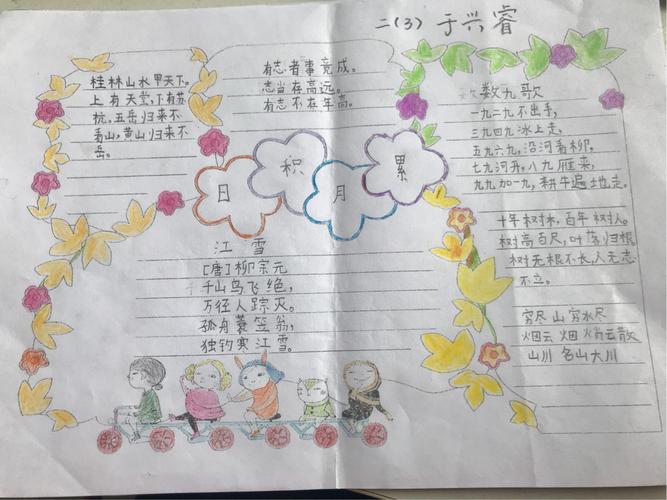 二(3) 于兴睿
桂林山水甲天下。
上有天堂,下有苏
杭,五岳归来不
看山,黄山归来不
岳。
有志者事竟成。
志当存高远。
有志不在年高。
日积月累
江雪
[唐]柳宗元
千山鸟飞绝,
万径人踪灭。
孤舟蓑笠翁,
独钓寒江雪。
数九歌
一九二九不出手,
三九四九冰上走,
五九六九,沿河看柳,
七九河开,八九雁来,
九九加一九,耕牛遍地走。
十年树木,百年树人。
树高百尺,叶落归根
树无根不长,人无志
不立。
穷尽 山穷水尽
烟云 烟消云散
山川 名山大川